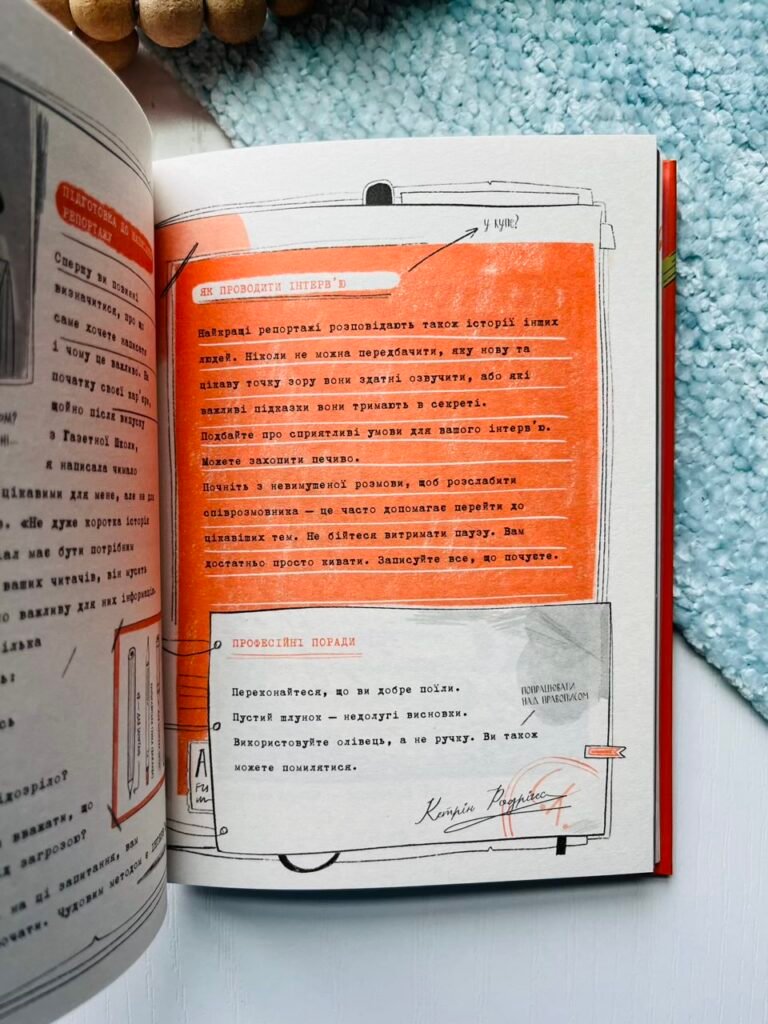 ПІДГОТОВКА ДО
РЕПОРТАЖУ
Спершу ви повинні
визначитися, про що
саме хочете написати
і чому це важливо. На
початку своєї кар'єри,
щойно після випуску
з Газетної Школи,
я написала чимало
цікавими для мене, але не для
«Не дуже коротка історія
має бути потрібним
ваших читачів, він мусить
важливу для них інформацію.
вважати, що
загрозою?
на ці запитання, вам
Чудовим методом є
у купе?
ЯК ПРОВОДИТИ ІНТЕРВ'Ю
Найкращі репортажі розповідають також історії інших
людей. Ніколи не можна передбачити, яку нову та
цікаву точку зору вони здатні озвучити, або які
важливі підказки вони тримають в секреті.
Подбайте про сприятливі умови для вашого інтерв'ю.
Можете захопити печиво.
Почніть з невимушеної розмови, щоб розслабити
співрозмовника — це часто допомагає перейти до
цікавіших тем. Не бійтеся витримати паузу. Вам
достатньо просто кивати. Записуйте все, що почуєте.
ПРОФЕСІЙНІ ПОРАДИ
Переконайтеся, що ви добре поїли.
Пустий шлунок — недолугі висновки.
Використовуйте олівець, а не ручку. Ви також
можете помилятися.
ПОПРАЦЮВАТИ
НАД ПРАВОПИСОМ
Кетрін Родрікс